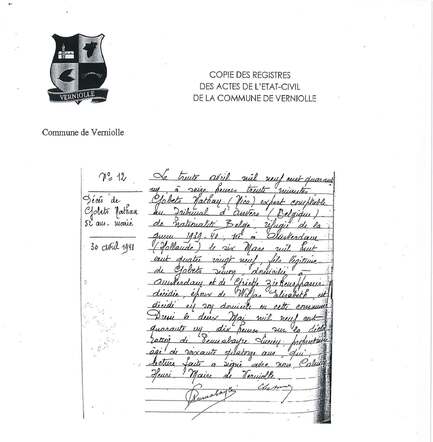 VERNIOLLE
COPIE DES REGISTRES
DES ACTES DE L'ETAT-CIVIL
DE LA COMMUNE DE VERNIOLLE
Commune de Verniolle
N° 12
Décès de
Nathan
52 ans. marié
30 avril 1941
Le trente avril mil neuf cent quarante
un, à seize heures trente minutes
Nathan (Nico) expert comptable
au Tribunal d'Anvers (Belgique)
de nationalité Belge, réfugié de la
guerre 1939-40, né à Amsterdam
(Hollande) le six Mars mil huit
cent quatre vingt neuf, fils légitime
de domicilié à
Amsterdam et de
décédée, époux de Elisabeth est
décédé en son domicile en cette commune
Dressé le deux Mai mil neuf cent
quarante un dix heures sur la décla
ration de propriétaire
âgé de soixante quatorze ans qui,
lecture faite a signé avec nous
Henri Maire de Verniolle.